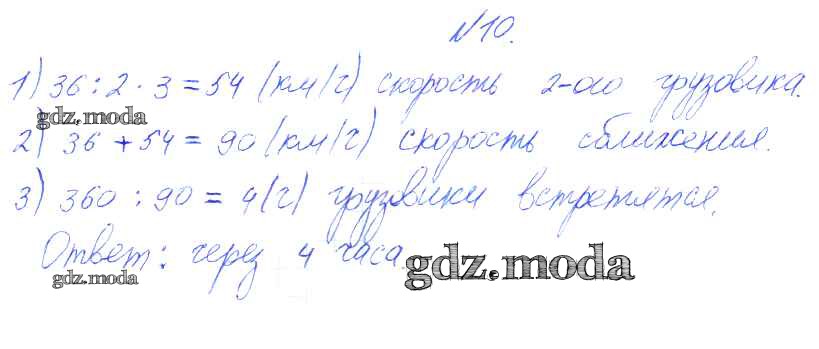 №10.
1) 36:2·3=54 (км/ч) скорость 2-ого грузовика.
gdz.moda
2) 36+54=90 (км/ч) скорость сближения.
3) 360:90=4(ч) грузовики встретятся.
Ответ: через 4 часа.
gdz.moda
gdz.moda